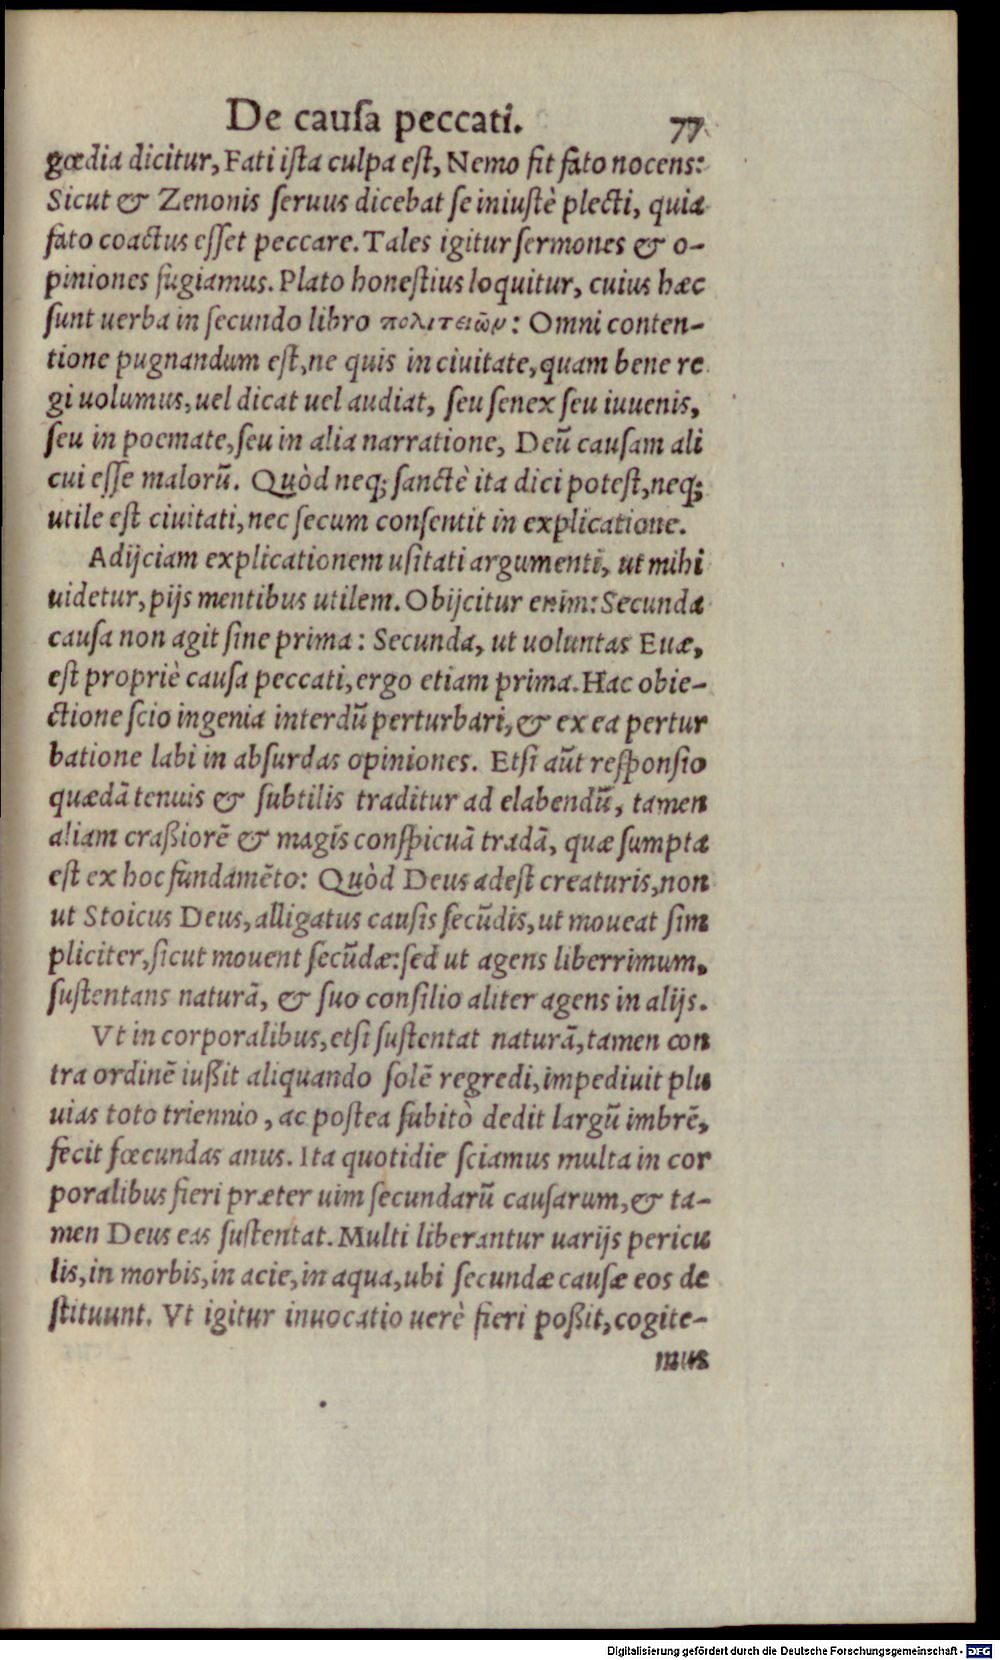 De cauſa peccati. 77
gœdia dicitur, Fati iſta culpa eſt, Nemo fit fato nocens:
Sicut & Zenonis ſeruus dicebat ſe iniuſtè plecti, quia
fato coactus eſſet peccare. Tales igitur ſermones & o-
piniones fugiamus. Plato honeſtius loquitur, cuius hæc
ſunt uerba in ſecundo libro πολιτειῶν: Omni conten-
tione pugnandum eſt, ne quis in ciuitate, quam bene re
gi uolumus, uel dicat uel audiat, ſeu ſenex ſeu iuuenis,
ſeu in poemate, ſeu in alia narratione, Deũ cauſam ali
cui eſſe malorũ. Quòd neq; ſanctè ita dici poteſt, neq;
utile eſt ciuitati, nec ſecum conſentit in explicatione.
Adijciam explicationem uſitati argumenti, ut mihi
uidetur, pijs mentibus utilem. Obijcitur enim: Secunda
cauſa non agit ſine prima: Secunda, ut uoluntas Euæ,
eſt propriè cauſa peccati, ergo etiam prima. Hac obie-
ctione ſcio ingenia interdũ perturbari, & ex ea pertur
batione labi in abſurdas opiniones. Etſi aũt reſponſio
quædã tenuis & ſubtilis traditur ad elabendũ, tamen
aliam craßiorẽ & magis conſpicuã tradã, quæ ſumpta
eſt ex hoc fundamẽto: Quòd Deus adeſt creaturis, non
ut Stoicus Deus, alligatus cauſis ſecũdis, ut moueat ſim
pliciter, ſicut mouent ſecũdæ: ſed ut agens liberrimum,
ſuſtentans naturã, & ſuo conſilio aliter agens in alijs.
Vt in corporalibus, etſi ſuſtentat naturã, tamen con
tra ordinẽ iußit aliquando ſolẽ regredi, impediuit plu
uias toto triennio, ac poſtea ſubitò dedit largũ imbrẽ,
fecit fœcundas anus. Ita quotidie ſciamus multa in cor
poralibus fieri præter uim ſecundarũ cauſarum, & ta-
men Deus eas ſuſtentat. Multi liberantur uarijs pericu
lis, in morbis, in acie, in aqua, ubi ſecundæ cauſæ eos de
ſtituunt. Vt igitur inuocatio uerè fieri poßit, cogite-
mus
Digitalisierung gefördert durch die Deutsche Forschungsgemeinschaft - DFG